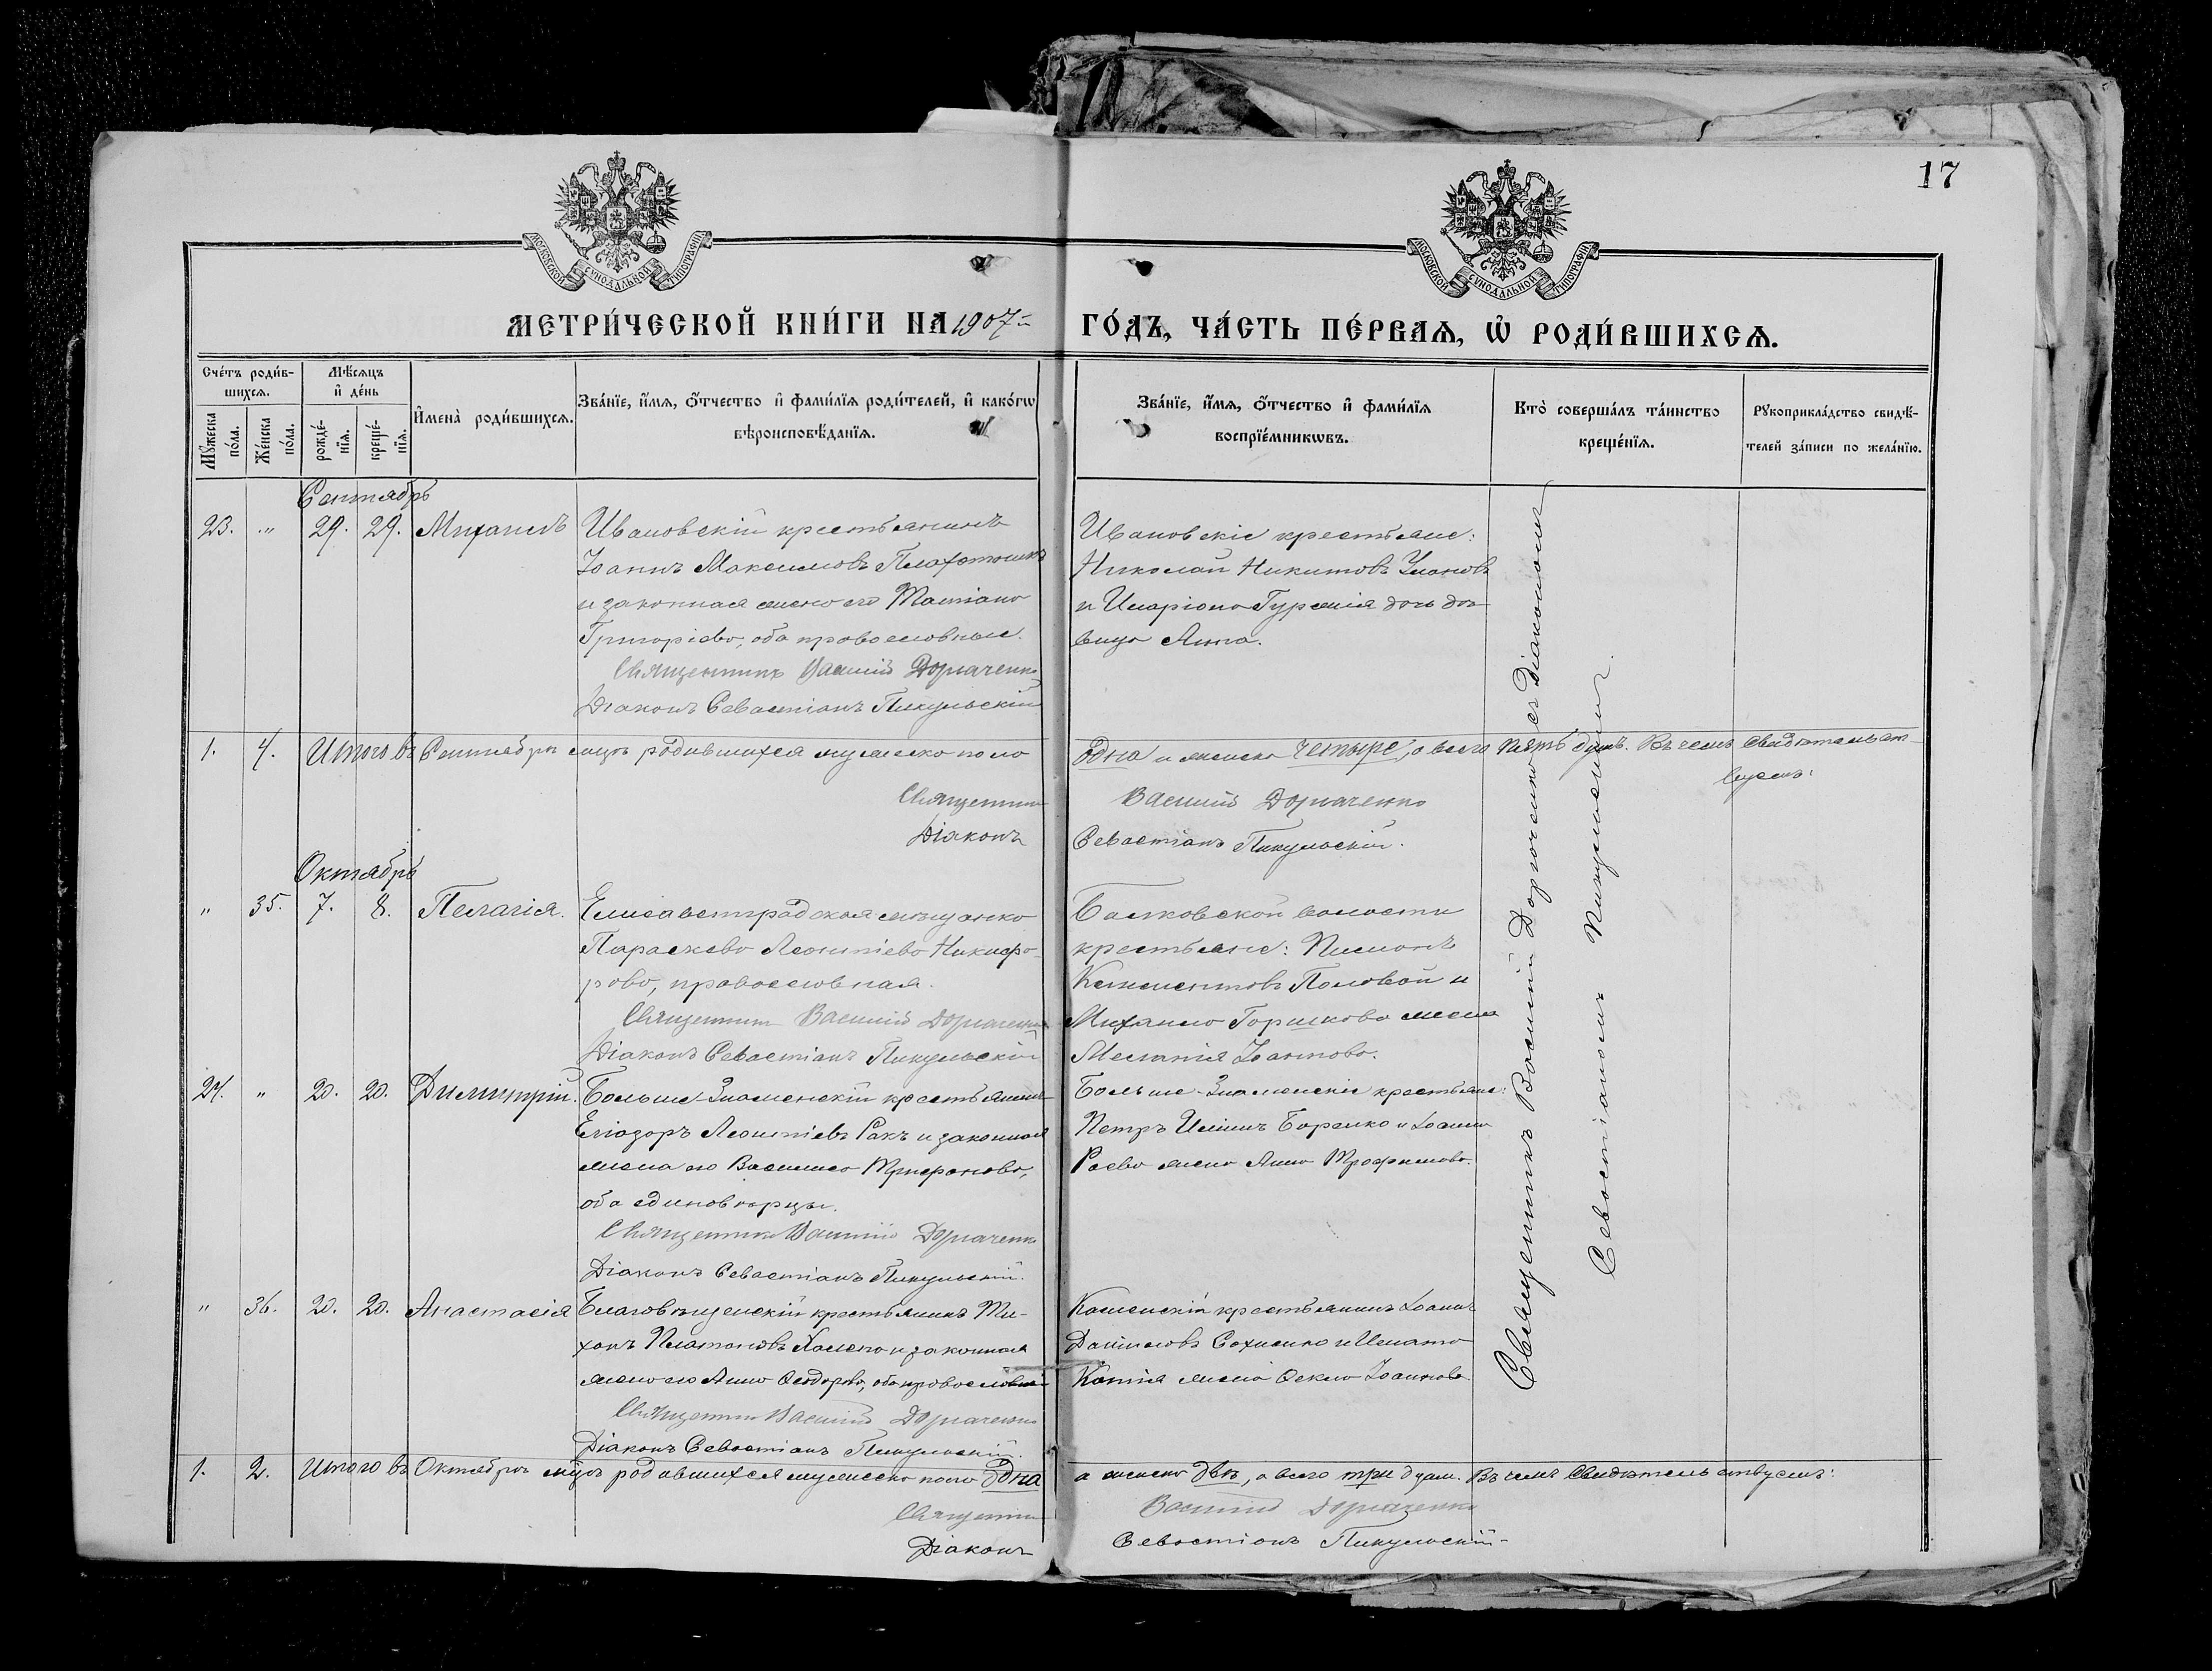 17
МОСКОВСКОЙ СУНОДАЛЬНОЙ ТИПОГРАФІИ
МОСКОВСКОЙ СУНОДАЛЬНОЙ ТИПОГРАФІИ
МЕТРИ́ЧЕСКОЙ КНИ́ГИ НА 1907-й ГО́ДЪ, ЧА́СТЬ ПЕ́РВАѦ, Ѡ҆ РОДИ́ВШИХСѦ.
Сче́тъ роди́в-
шихсѧ.
Мꙋ́жеска по́ла.
Же́нска по́ла.
Мѣ́сѧцъ
и҆ де́нь
рожде́-
нїѧ.
креще́-
нїѧ.
И҆мена̀ роди́вшихсѧ.
Зва́нїе, и҆́мѧ, ѻ҆́тчество и҆ фами́лїѧ роди́телей, и҆ како́гѡ
вѣроисповѣ́данїѧ.
Зва́нїе, и҆́мѧ, ѻ҆́тчество и҆ фами́лїѧ
воспрїе́мникѡвъ.
Кто̀ соверша́лъ та́инство
креще́нїѧ.
Рꙋкоприкла́дство свидѣ́-
телей за́писи по жела́нїю.
Сентябрь
23. " 29. 29. Михаилъ
Ивановскій крестьянинъ
Іоаннъ Максимовъ
и законная жена его Татіана
Григоріева, оба православные.
Священникъ Василій Дорпаченко
Діаконъ Севастіанъ Пикульскій
Ивановскіе крестьяне:
Николай Никитовъ Улановъ
и Иларіона дочь дѣ-
вица Анна.
1. 4. Итого въ Сентябрѣ мцѣ родившихся мужеска пола одна и женска четыре, а всего пять душъ. Въ чемъ свидѣтельст-
вуемъ:
Священникъ Василій Дорпаченко
Діаконъ Севастіанъ Пикульскій.
Октябрь
" 35. 7. 8. Пелагія.
Елисаветградская мѣщанка
Параскева Леонтіева Никифо-
рова, православная.
Священникъ Василій Дорпаченко
Діаконъ Севастіанъ Пикульскій
Балковской волости
крестьяне: Пименъ
Климентовъ Половой и
Михаила Горшкова жена
Мелатія Іоаннова.
24. " 20. 20. Димитрій.
Больше-Знаменскій крестьянинъ
Еліазаръ Леонтіевъ Ракъ и законная
жена его Василиса Трифонова,
оба единовѣрцы.
Священникъ Василій Дорпаченко
Діаконъ Севастіанъ Пикульскій.
Больше-Знаменскіе крестьяне:
Петръ Ильинъ Боренко и Іоанна
Раева жена Анна Трофимова.
" 36. 20. 20. Анастасія
Благовѣщенскій крестьянинъ Ти-
хонъ Платоновъ и законная
жена его Анна Ѳеодорова, оба православные
Священникъ Василій Дорпаченко
Діаконъ Севастіанъ Пикульскій.
Каменскій крестьянинъ Іоаннъ
Даниловъ Сахненко и Игната
жена Ѳекла Іоаннова.
1. 2. Итого въ Октябрѣ мцѣ родившихся мужеска пола одна а женска двѣ, а всего три душ. Въ чемъ свидѣтельствуемъ:
Священникъ Василій Дорпаченко
Діаконъ Севастіанъ Пикульскій
Священникъ Василій Дорпаченко съ Діакономъ
Севастіаномъ Пикульскимъ.